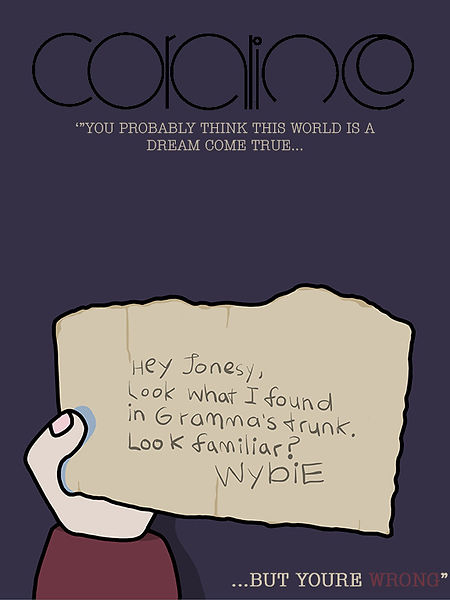 coraline
‘"YOU PROBABLY THINK THIS WORLD IS A
DREAM COME TRUE...
Hey Jonesy,
Look what I found
in Gramma's trunk.
Look familiar?
WybiE
...BUT YOURE WRONG"